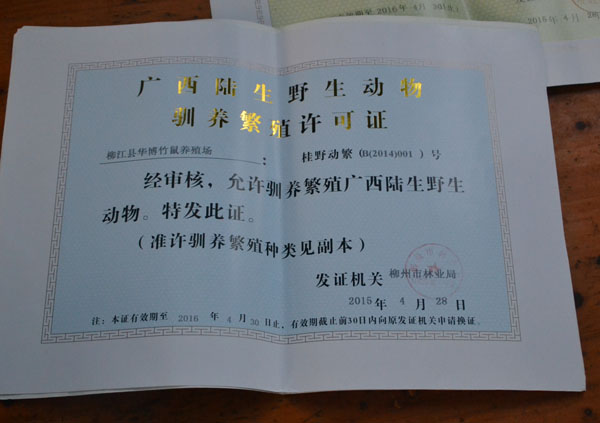 期至 2016 年 4月 30日
2015 年 4 月 28
广西陆生野生动物
驯养繁殖许可证
柳江县华博竹鼠养殖场 : 桂野动繁(B(2014)001 )号
经审核，允许驯养繁殖广西陆生野生
动物。特发此证。
(准许驯养繁殖种类见副本)
发证机关 柳州市林业局
2015 年 4 月 28 日
注：本证有效期至 2016 年 4 月 30 日止，有效期截止前30日内向原发证机关申请换证。